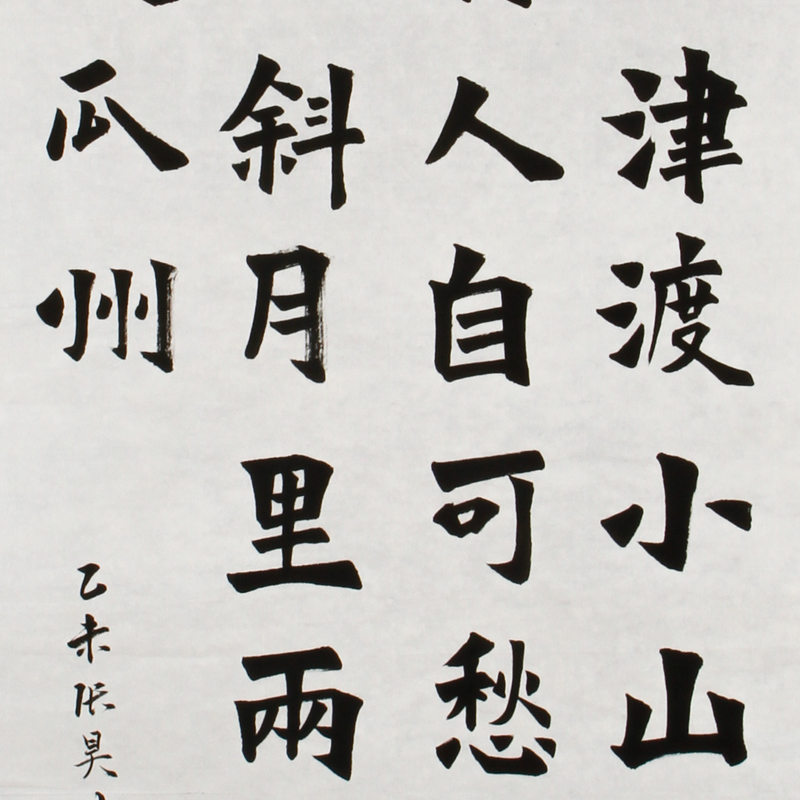 津渡小山
人自可愁
斜月里兩
瓜州
乙未張昊